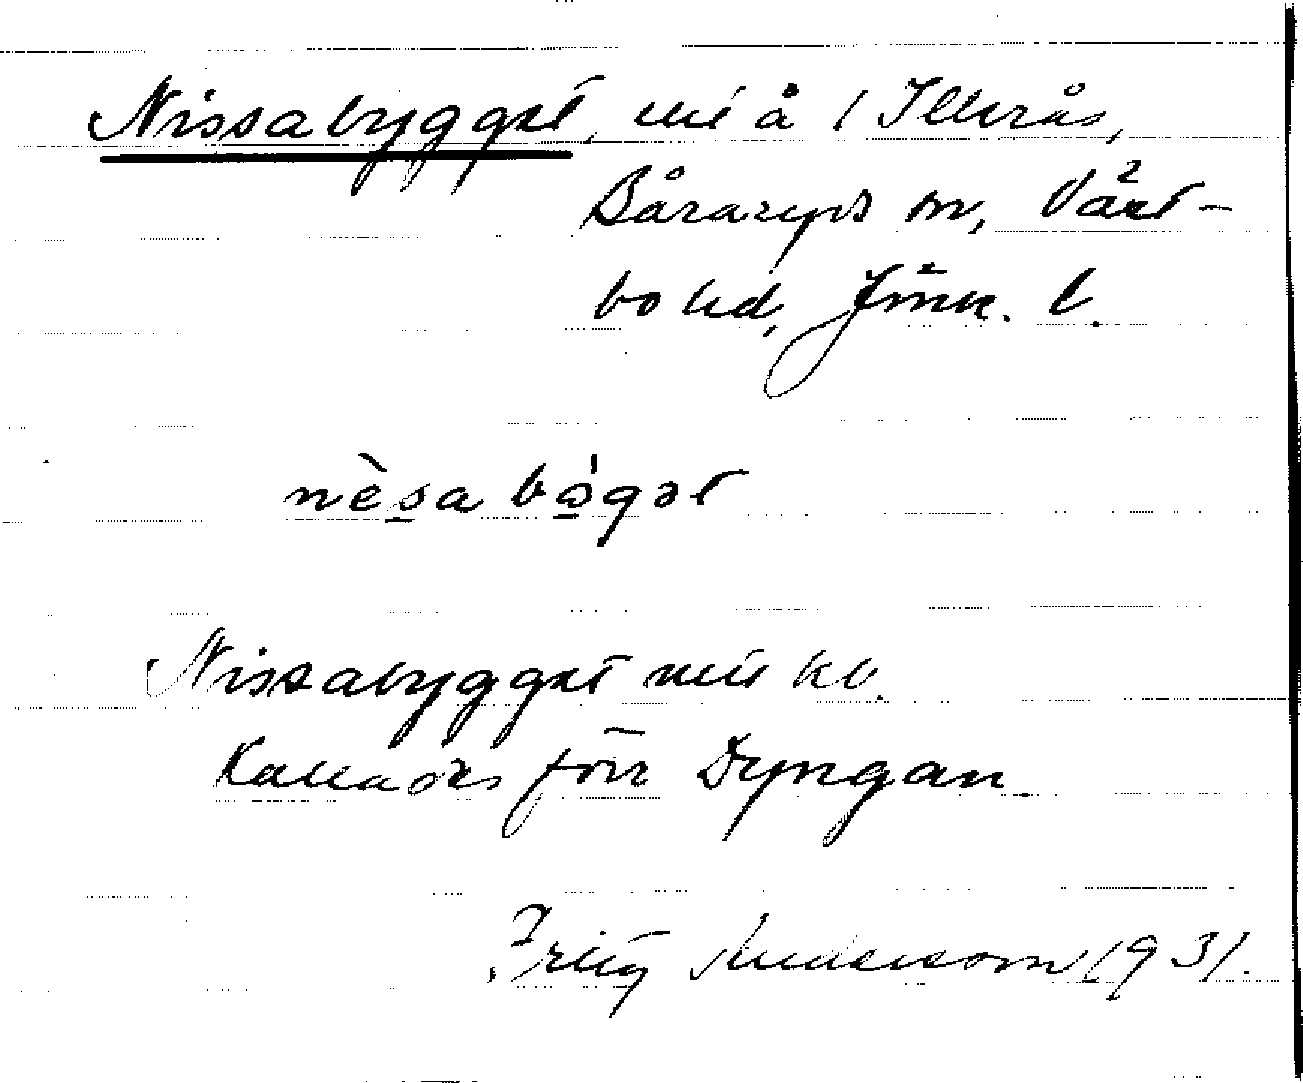 Nissabygget, utj å 1 Illerås,
Båraryds sn, Väst-
bo hd, Jönk. l.
nèsa bǿgət
Nissabygget
Kallades förr Dyngan.
Fritz Andersson 1931.